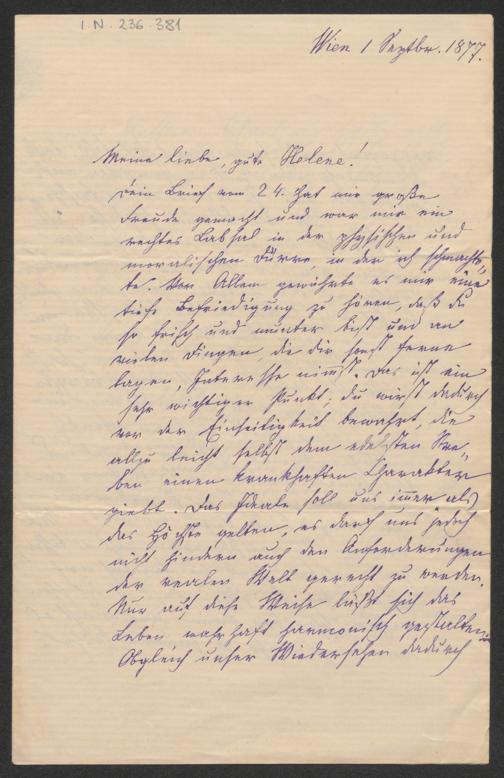 I.N. 236.381
Wien 1 Septbr. 1877.
Meine liebe, gute Helene!
Dein Brief vom 24. hat mir große
Freude gemacht und war mir ein
rechtes Labsal in der physischen und
moralischen Dürre, in der ich schmachte-
te. Vor Allem gewährte es mir eine
tiefe Befriedigung zu hören, daß Du
so frisch und munter bist und an
vielen Dingen, die dir sonst ferne
lagen, Interesse nimst. Das ist ein
sehr wichtiger Punkt; du wirst dadurch
vor der Einseitigkeit bewahrt, die
allzu leicht selbst dem edelsten Stre-
ben einen krankhaften Charakter
giebt. Das Ideale soll uns immer als
das Höchste gelten, es darf uns jedoch
nicht hindern auch den Anforderungen
der realen Welt gerecht zu werden.
Nur auf diese Weise läßt sich das
Leben wahrhaft harmonisch gestalten.
Obgleich unser Wiedersehen dadurch